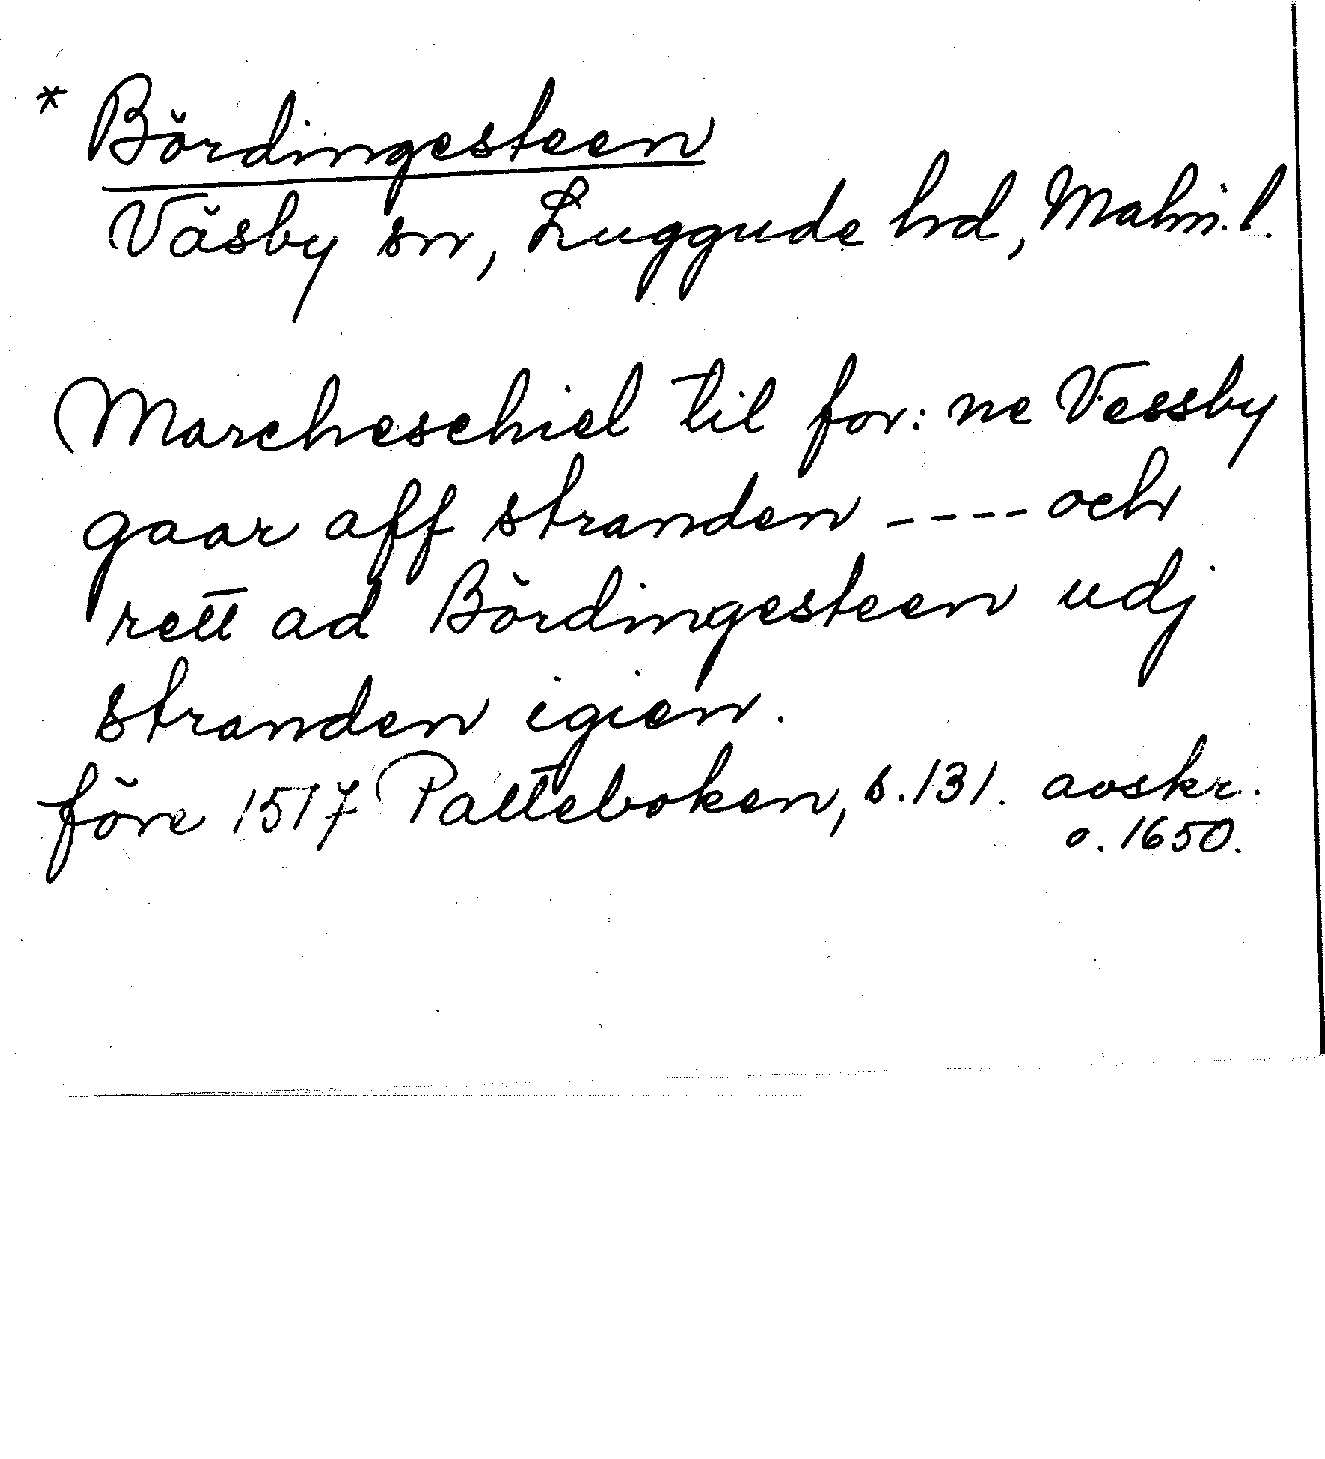 * Bördingesteen
Väsby sn, Luggude hd, Malm. l.
Marcheschiel til for: ne Vessby
gaar aff stranden ---- och
rett ad Bördingesteen udj
stranden igien.
före 1517 Palteboken, s. 131. avskr.
o. 1650.